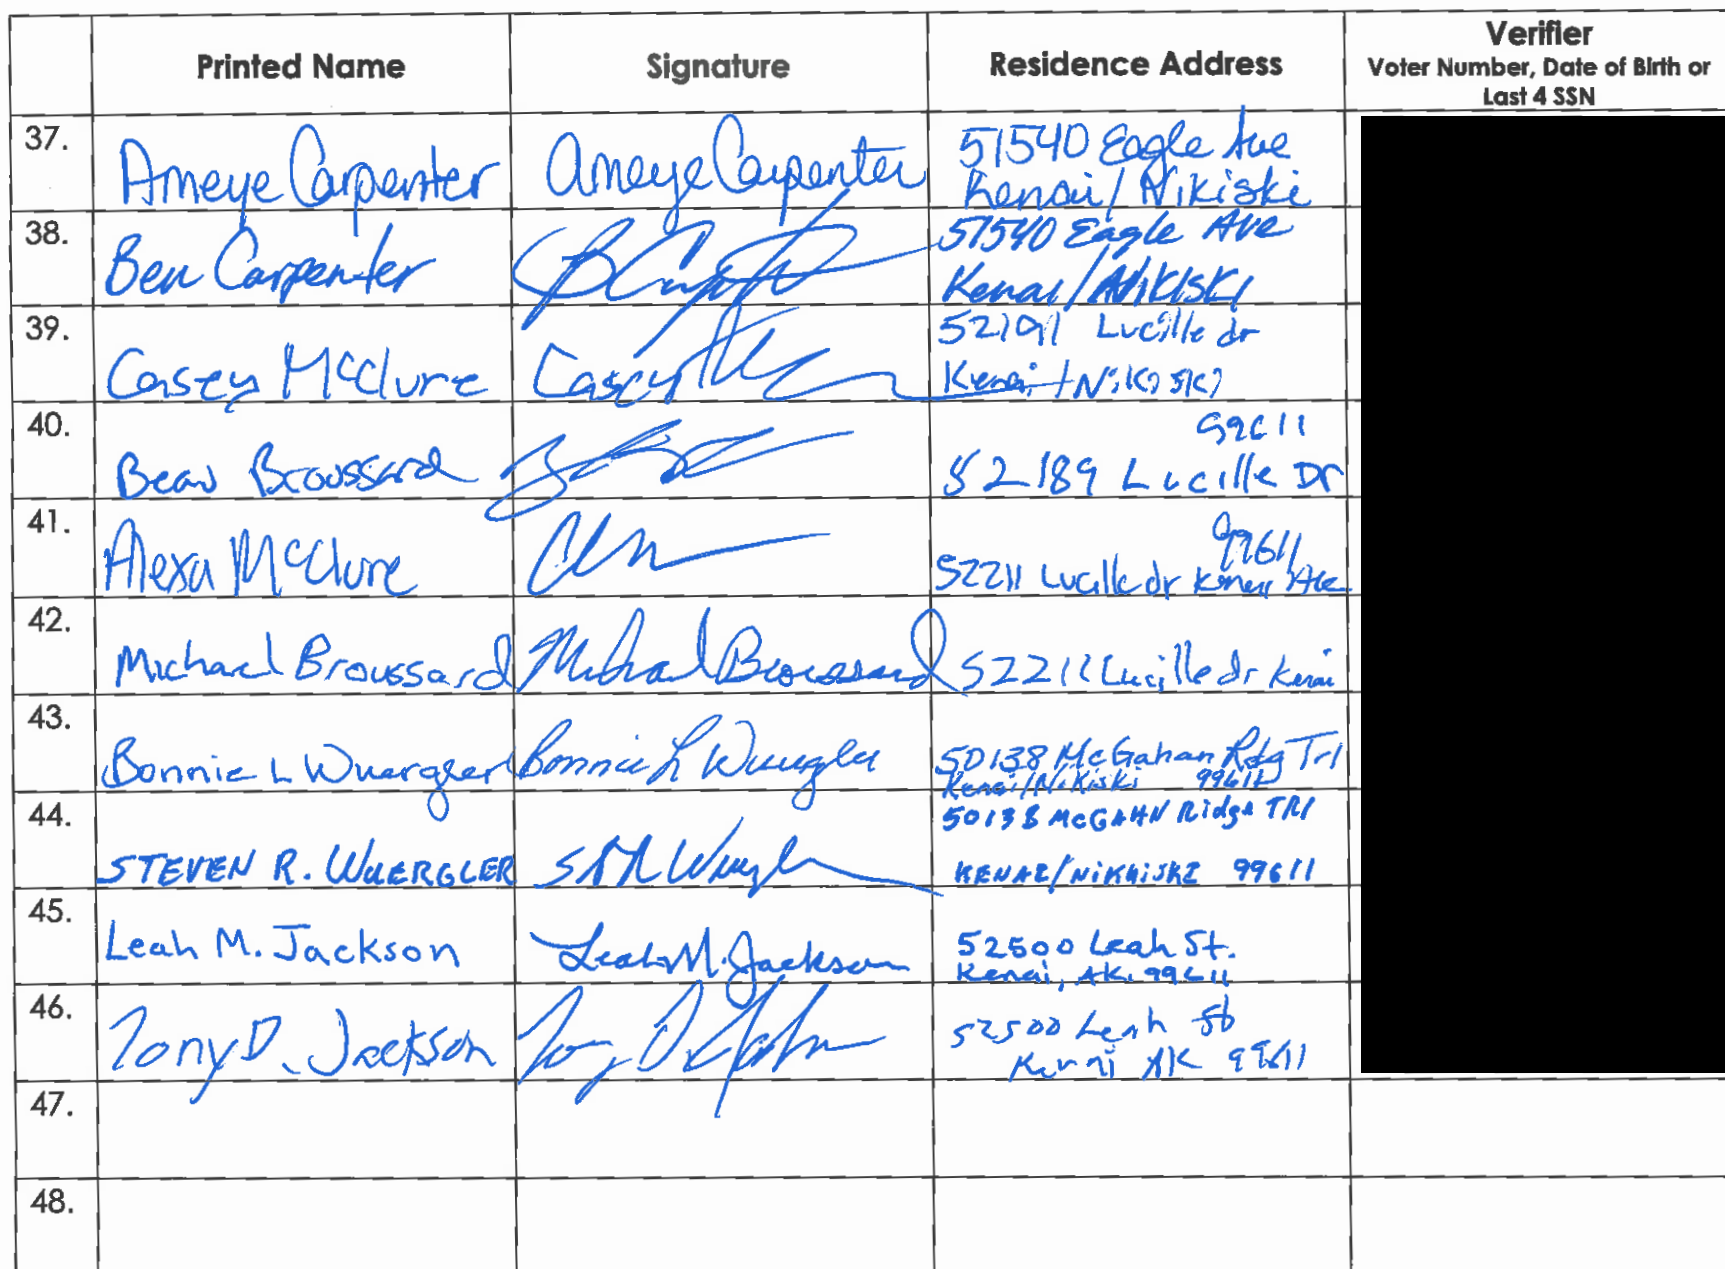 Printed Name Signature Residence Address Verifier
Voter Number, Date of Birth or
Last 4 SSN
37. Ameye Carpenter Ameye Carpenter 51540 Eagle Ave
Kenai/Nikiski
38. Ben Carpenter 51540 Eagle Ave
Kenai/Nikiski
39. Casey McClure Casey 52191 Lucille dr
Kenai/Nikiski
40. Beau Broussard 99611
52189 Lucille Dr
41. Alexa McClure 99611
52211 Lucille dr Kenai
42. Michael Broussard Michael Broussard 52211 Lucille dr Kenai
43. Bonnie L Wuergler Bonnie L Wuergler 50138 McGahan Rdg Trl
Kenai/Nikiski 99611
44. STEVEN R. WUERGLER S R Wuergler 50138 McGAHN Ridge TRl
KENAI/NiKhiSKI 99611
45. Leah M. Jackson Leah M. Jackson 52500 Leah St.
Kenai, AK. 99611
46. Tony D. Jackson Tony D Jackson 52500 Leah St
Kenai AK 99611
47.
48.